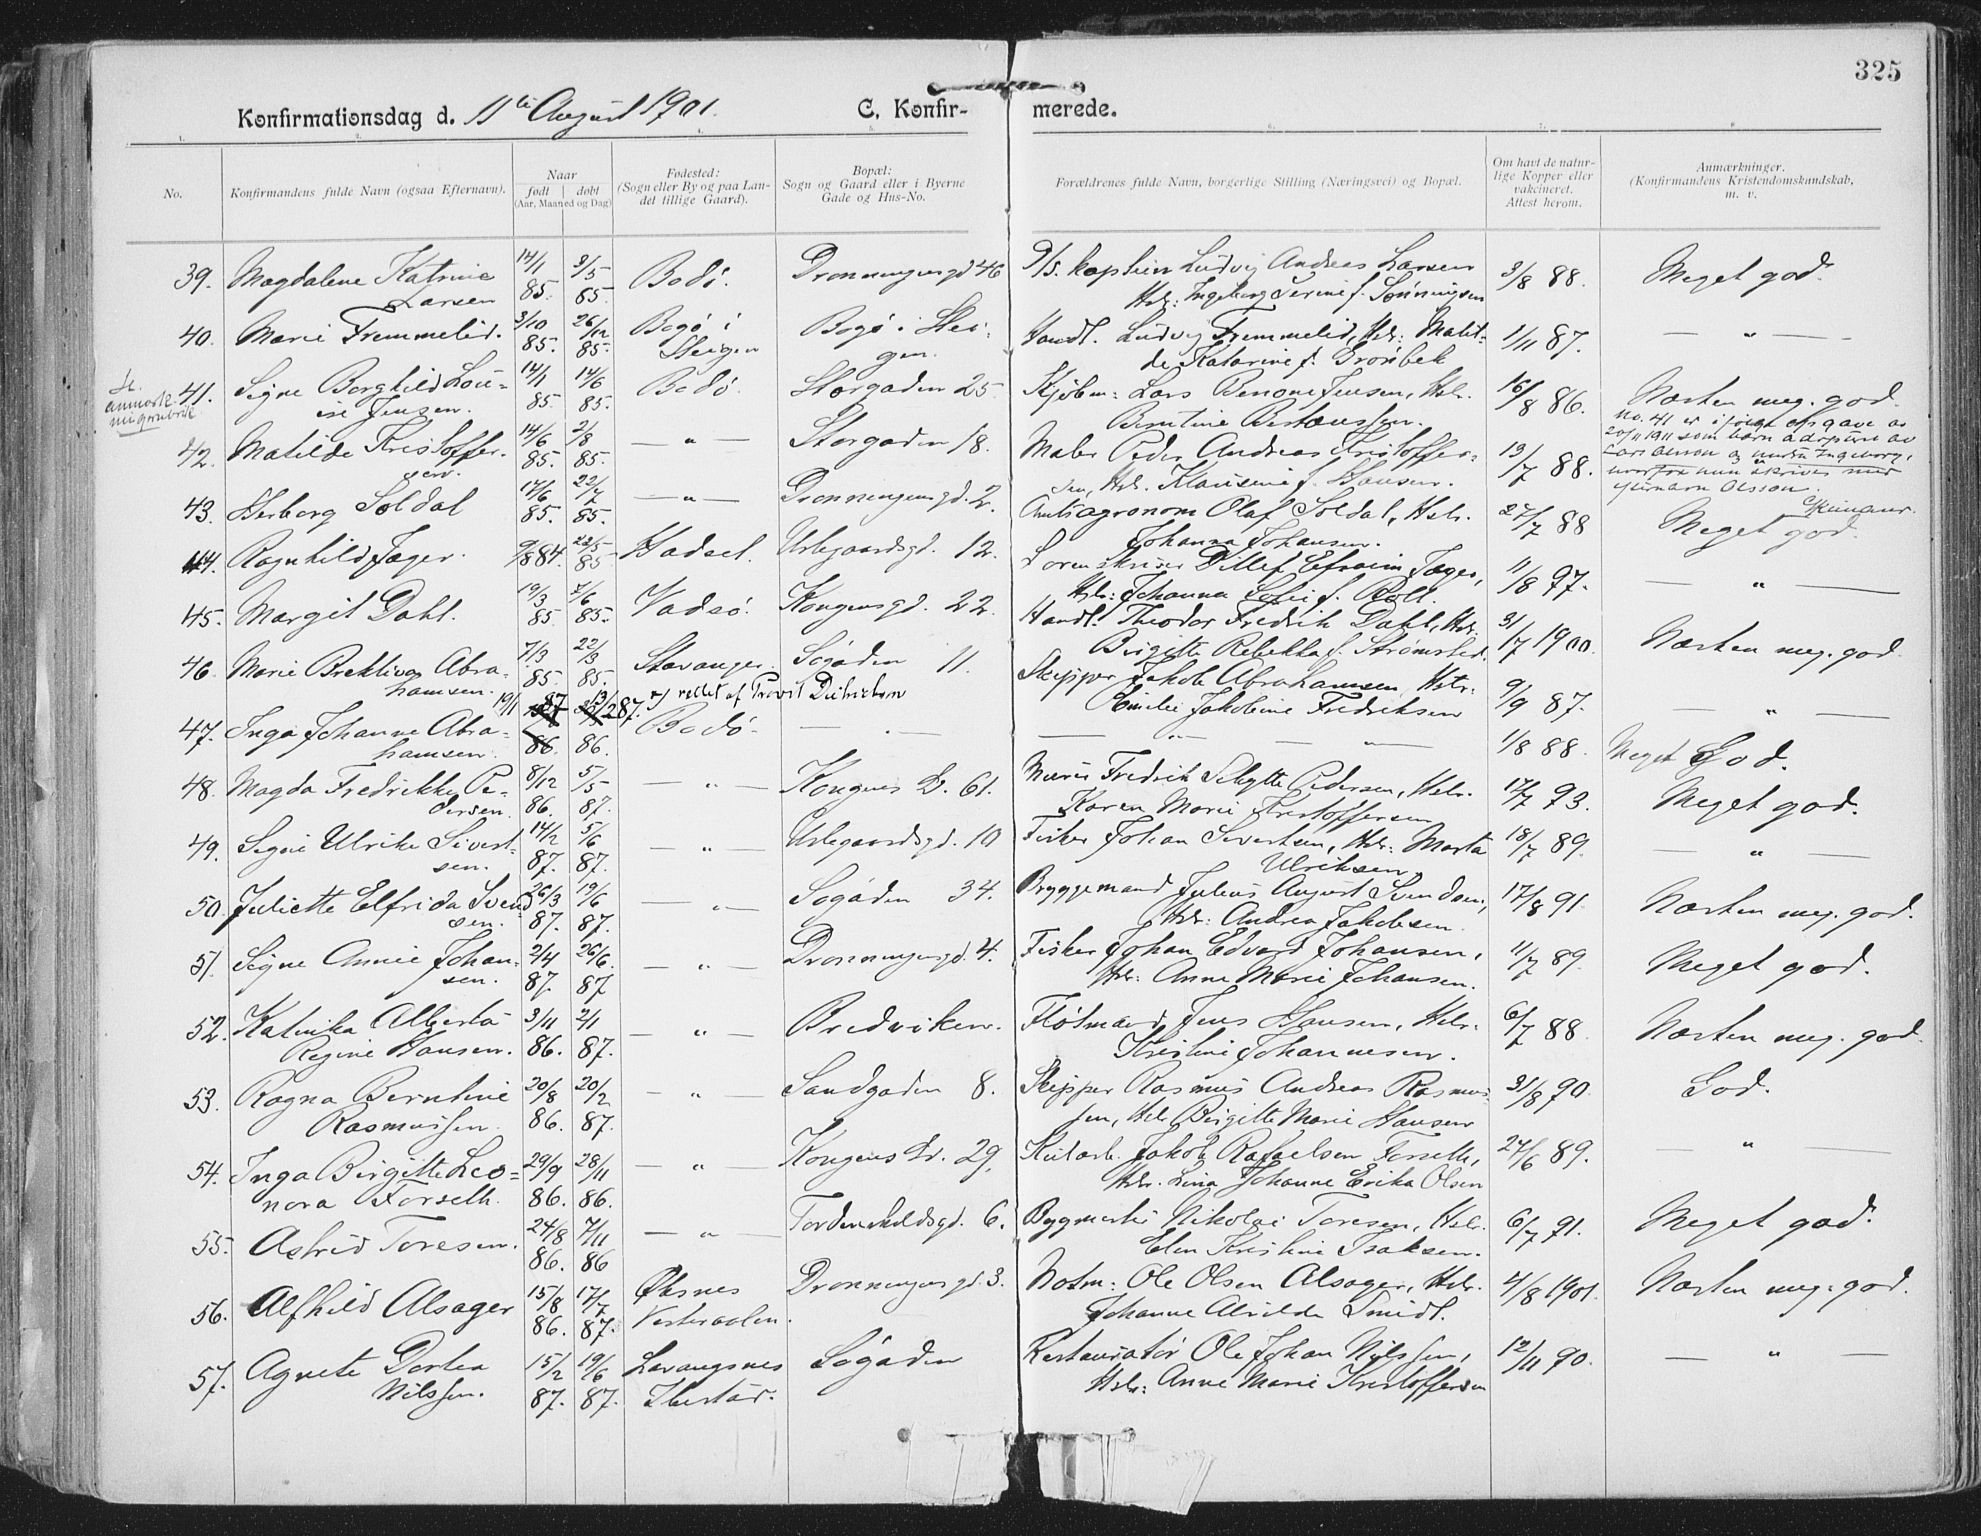 325
Konfirmationsdag d. 11te August 1901.
C. Konfirmerede.
1. 2. 3. 4. 5. 6. 7. 8.
No.
Konfirmandens fulde Navn (ogsaa Efternavn).
Naar
født | døbt
(Aar, Maaned og Dag)
Fødested:
(Sogn eller By og paa Landet tillige Gaard).
Bopæl:
Sogn og Gaard eller i Byerne Gade og Hus-No.
Forældrenes fulde Navn, borgerlige Stilling (Næringsvei) og Bopæl.
Om havt de naturlige Kopper eller vakcineret. Attest herom.
Anmærkninger.
(Konfirmandens Kristendomskundskab, m. v.
39. Magdalene Katrine 14/1 3/5 Bodø. Dronningensgd 46 D/S. kaptein Ludvig Andreas Larsen 3/8 88. Meget god.
Larsen 85. 85. Hstr: Ingeborg Serine f. Sønningsen
40. Marie Fremmelid. 3/10 26/12 Bogø i Bogø i Stei- Handl. Ludvig Fremmelid, Hstr: Matil- 1/11 87. — " —
85. 85. Steigen gen. de Katarine f. Grønbek
41. Signe Borghild Lou- 14/1 14/6 Bodø. Storgaden 25 Kjøbm: Lars Benoni Jensen, Hstr. 16/8 86. Næsten meg. god.
ise Jensen. 85. 85.
No. 41 er ifølge opgave av
20/11 1911 som barn adoptert av
Lars Olsson
Olsson.
42. Matilde Kristoffer- 14/6 2/8 — " — Storgaden 18. Maler Peder Andreas Kristoffer- 13/7 88.
sen. 85. 85. sen, Hstr. Klausine f. Hansen.
43. Herborg Soldal 14/6 22/7 — " — Dronningensgd. 2. Amtsagronom Olaf Soldal, Hstr. 27/7 88 Meget god.
85. 85. Johanna Johansen.
44. Ragnhild Jæger. 9/8 84. 22/5 85 Hadsel. 12. Sorenskriver Ditlef Efraim Jæger, 11/8 97. — " —
Hstr: Johanna Sofie f. Boll.
45. Margit Dahl. 19/3 7/6 Vadsø. Kongensgd. 22. Handl. Theodor Fredrik Dahl, Hstr. 31/7 1900. Næsten meg. god
85. 85. Birgitte Rebekka f. Strømsted.
46. Marie Abra- 7/3 22/3 Stavanger. Søgaden 11. Skipper Jakob Abrahamsen, Hstr. 9/9 87. — " —
hamsen. 85. 85. Emilie Jakobine Fredriksen
19/11 87 13/2 87. rettet af Provst Dietrichson
47. Inga Johanne Abra- Bodø. — — " — — " — 1/8 88. Meget God.
hamsen. 86. 86.
48. Magda Fredrikke Pe- 8/12 5/5 — " — Kongens G. 61. Murer Fredrik Schytte Pedersen, Hstr. 17/7 93. Meget god.
dersen. 86. 87. Karen Marie Kristoffersen
49. Signe Ulrike Sivert- 14/2 5/6 — " — 10 Fisker Johan Sivertsen, Hstr. Marta 18/7 89. — " —
sen. 87. 87. Ulriksen
50. Juliette Elfrida Svend- 26/3 19/6 — " — Søgaden 34. Bryggemand Julius August Svendsen, 17/8 91. Næsten meg. god.
sen. 87. 87. Hstr: Andrea Jakobsen.
51. Signe Annie Johan- 2/4 26/6 — " — Dronningensgd. 4. Fisker Johan Edvard Johansen, 11/7 89. Meget god.
sen. 87. 87 Hstr: Anne Marie Johansen.
52. Katinka Alberta 3/11 2/1 — " — Bredviken. Fløtmand Jens Hansen, Hstr. 6/7 88 Næsten meg. god
Regine Hansen. 86. 87. Kristine Johannesen.
53. Ragna Berntine 20/8 20/2 — " — Sandgaden 8. Skipper Rasmus Andreas Rasmus- 31/8 90. God.
Rasmussen. 86. 87. sen, Hstr Birgitte Marie Hansen
54. Inga Birgitte Leo- 29/9 28/11 — " — Kongens G. 29. Jakob Rafaelsen Forseth, 27/6 89. — " —
nora Forseth. 86. 86. Hstr. Lina Johanne Erika Olsen
55. Astrid Toresen. 24/8 7/11 — " — Tordenskioldsgd. 6. Bygmester Nikolai Toresen, Hstr. 6/7 91. Meget god.
86. 86 Elen Kristine Isaksen.
56. Alfhild Alsager 15/8 17/7 Øksnes Dronningensgd. 3. Notm: Ole Olsen Alsager, Hstr. 4/8 1901. Næsten meg. god.
86. 87. Vesteraalen. Johanne Alvilde Smidt.
57. Agnete Dortea 15/2 19/6 Lavangsnes Søgaden Restauratør Ole Johan Nilssen, 12/11 90. — " —
Nilssen. 87. 87. Ibestad. Hstr: Anne Marie Kristoffersen